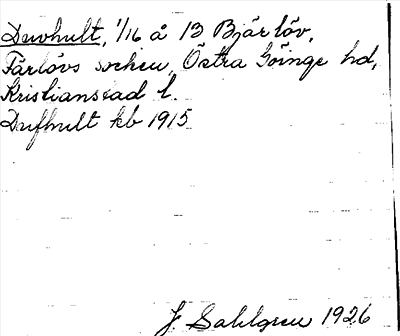 Duvhult, 1/16 å 13 Bjärlöv,
Färlövs socken, Östra Göinge hd,
Kristianstad l.
Dufhult kb 1915
J. Sahlgren 1926